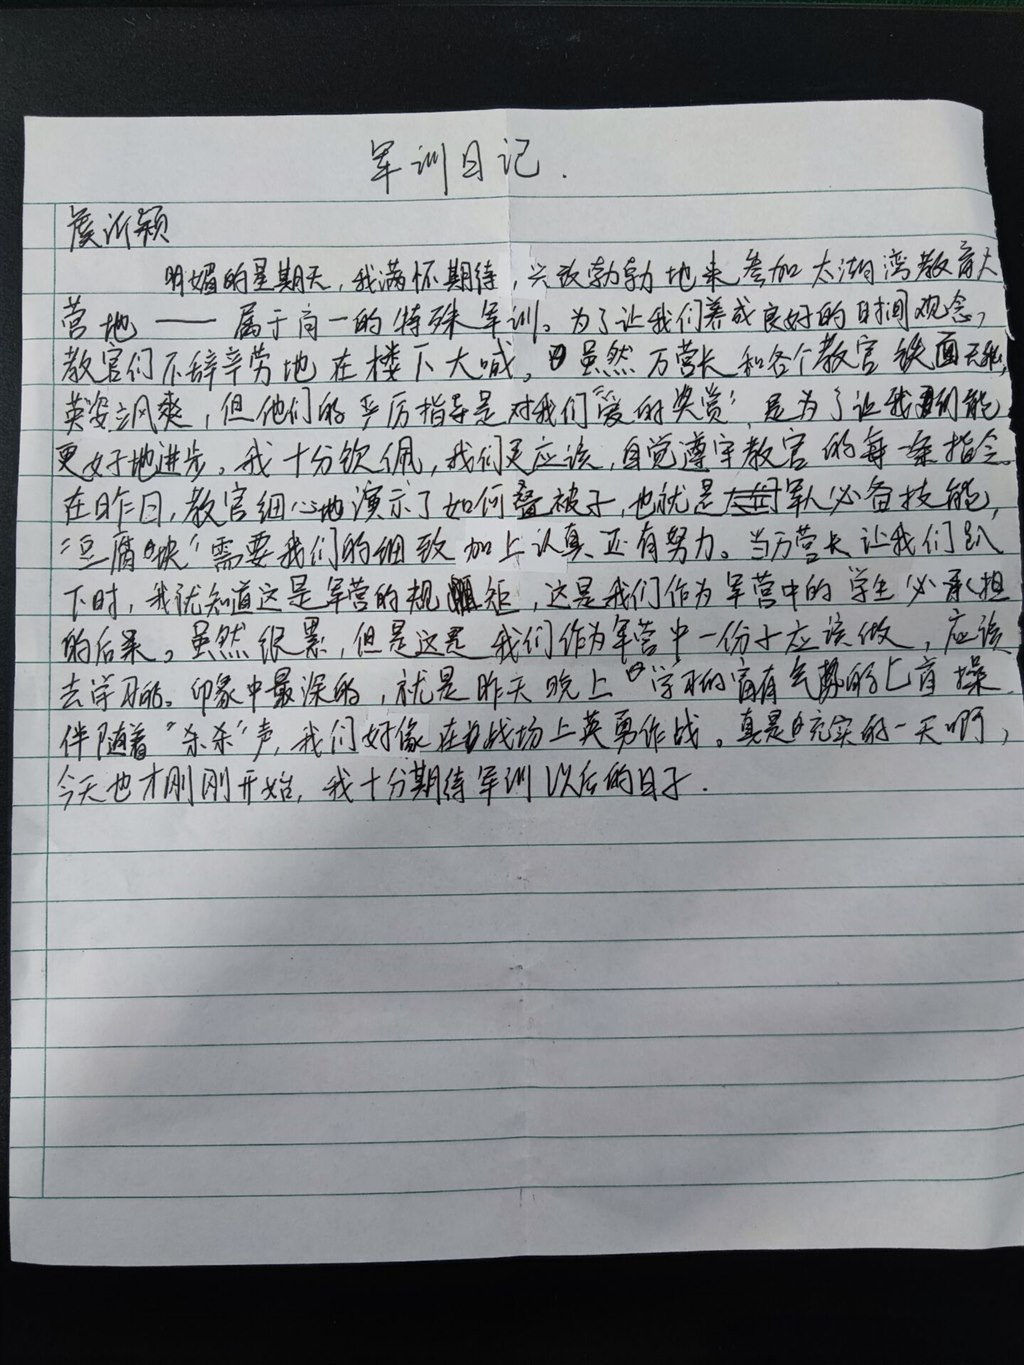 军训日记.
虞沂颖
明媚的星期天，我满怀期待，兴致勃勃地来参加太湖湾教育大
营地——属于高一的特殊军训。为了让我们养成良好的时间观念，
教官们不辞辛劳地在楼下大喊。虽然万营长和各个教官铁面无私，
英姿飒爽，但他们的严厉指导是对我们“爱的奖赏”，是为了让我们能
更好地进步。我十分钦佩，我们更应该，自觉遵守教官的每一条指令
在昨日，教官细心地演示了如何叠被子，也就是军人必备技能，
“豆腐块”需要我们的细致加上认真还有努力。当万营长让我们趴
下时，我就知道这是军营的规矩，这是我们作为军营中的学生必承担
的后果。虽然很累，但是这是我们作为军营中一份子应该做，应该
去学习的。印象中最深的，就是昨天晚上学习的富有气势的匕首操
伴随着“杀杀”声，我们好像在战场上英勇作战。真是充实的一天啊，
今天也才刚刚开始，我十分期待军训以后的日子.